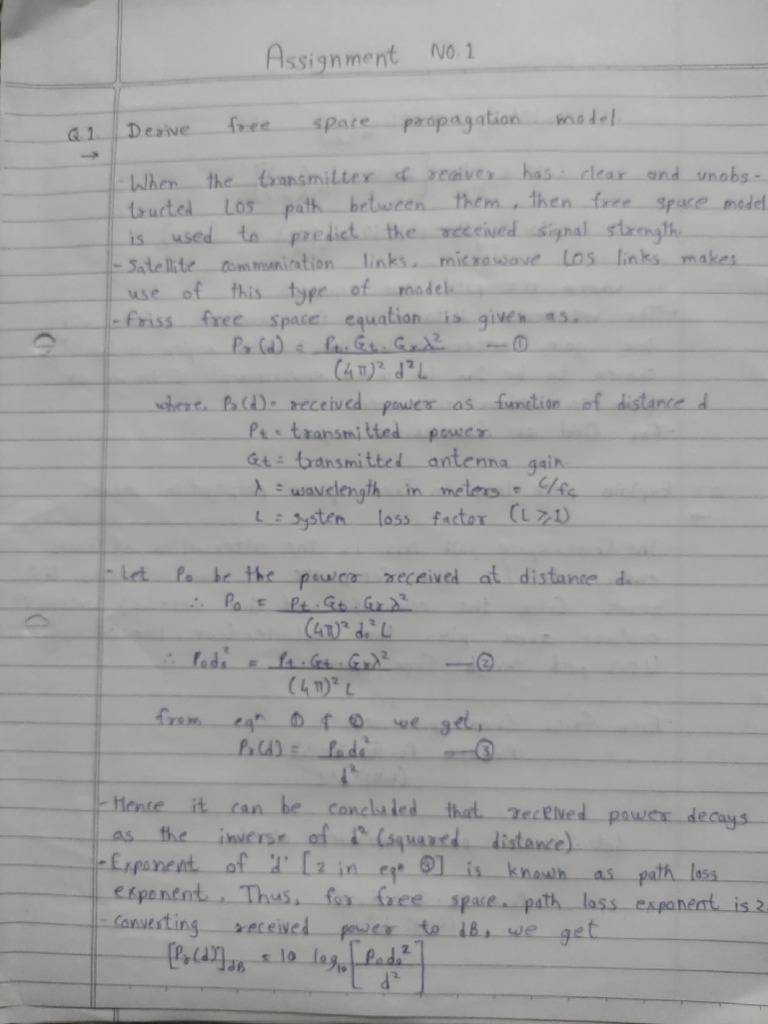 Assignment No. 1
Q1. Derive free space propagation model
→
- When the transmitter & reciver has clear and unobs-
tructed LOS path between them, then free space model
is used to predict the received signal strength.
- Satellite communication links, microwave LOS links makes
use of this type of model.
- Friss free space equation is given as,
Pr(d) = Pt.Gt.Grλ² / (4π)² d²L — ①
where, Pr(d) = received power as function of distance d
Pt = transmitted power
Gt = transmitted antenna gain
λ = wavelength in meters = c/fc
L = system loss factor (L≥1)
- Let Po be the power received at distance do
∴ Po = Pt.Gt.Grλ² / (4π)² do² L
∴ Podo² = Pt.Gt.Grλ² / (4π)² L — ②
from eqn ① & ② we get,
Pr(d) = Podo² / d² — ③
- Hence it can be concluded that received power decays
as the inverse of d² (squared distance)
- Exponent of 'd' [2 in eqn ③] is known as path loss
exponent. Thus, for free space, path loss exponent is 2.
- Converting received power to dB, we get
[Pr(d)]dB = 10 log₁₀ [Podo² / d²]